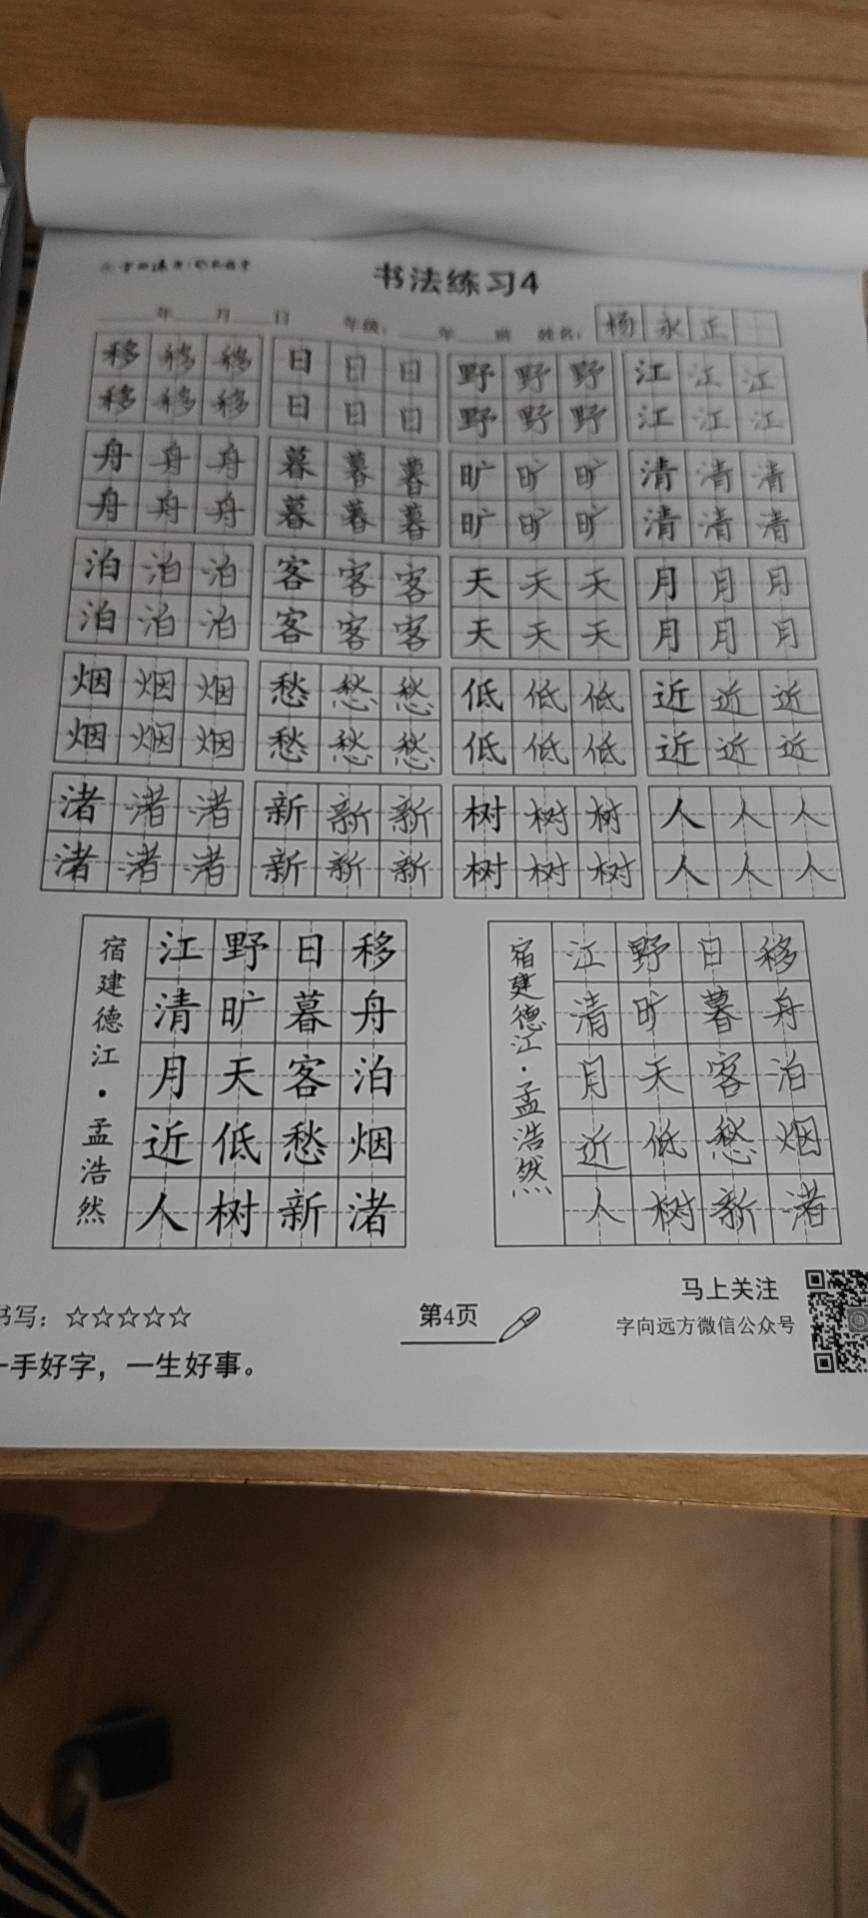 书法练习4
年 月 日 年级： 年 班 姓名： 杨永正
移移移 日日日 野野野 江江江
移移移 日日日 野野野 江江江
舟舟舟 暮暮暮 旷旷旷 清清清
舟舟舟 暮暮暮 旷旷旷 清清清
泊泊泊 客客客 天天天 月月月
泊泊泊 客客客 天天天 月月月
烟烟烟 愁愁愁 低低低 近近近
烟烟烟 愁愁愁 低低低 近近近
渚渚渚 新新新 树树树 人人人
渚渚渚 新新新 树树树 人人人
移舟泊烟渚
日暮客愁新
野旷天低树
江清月近人
宿建德江·孟浩然
移舟泊烟渚
日暮客愁新
野旷天低树
江清月近人
宿建德江·孟浩然
书写：☆☆☆☆☆
一手好字，一生好事。
第4页
马上关注
字向远方微信公众号